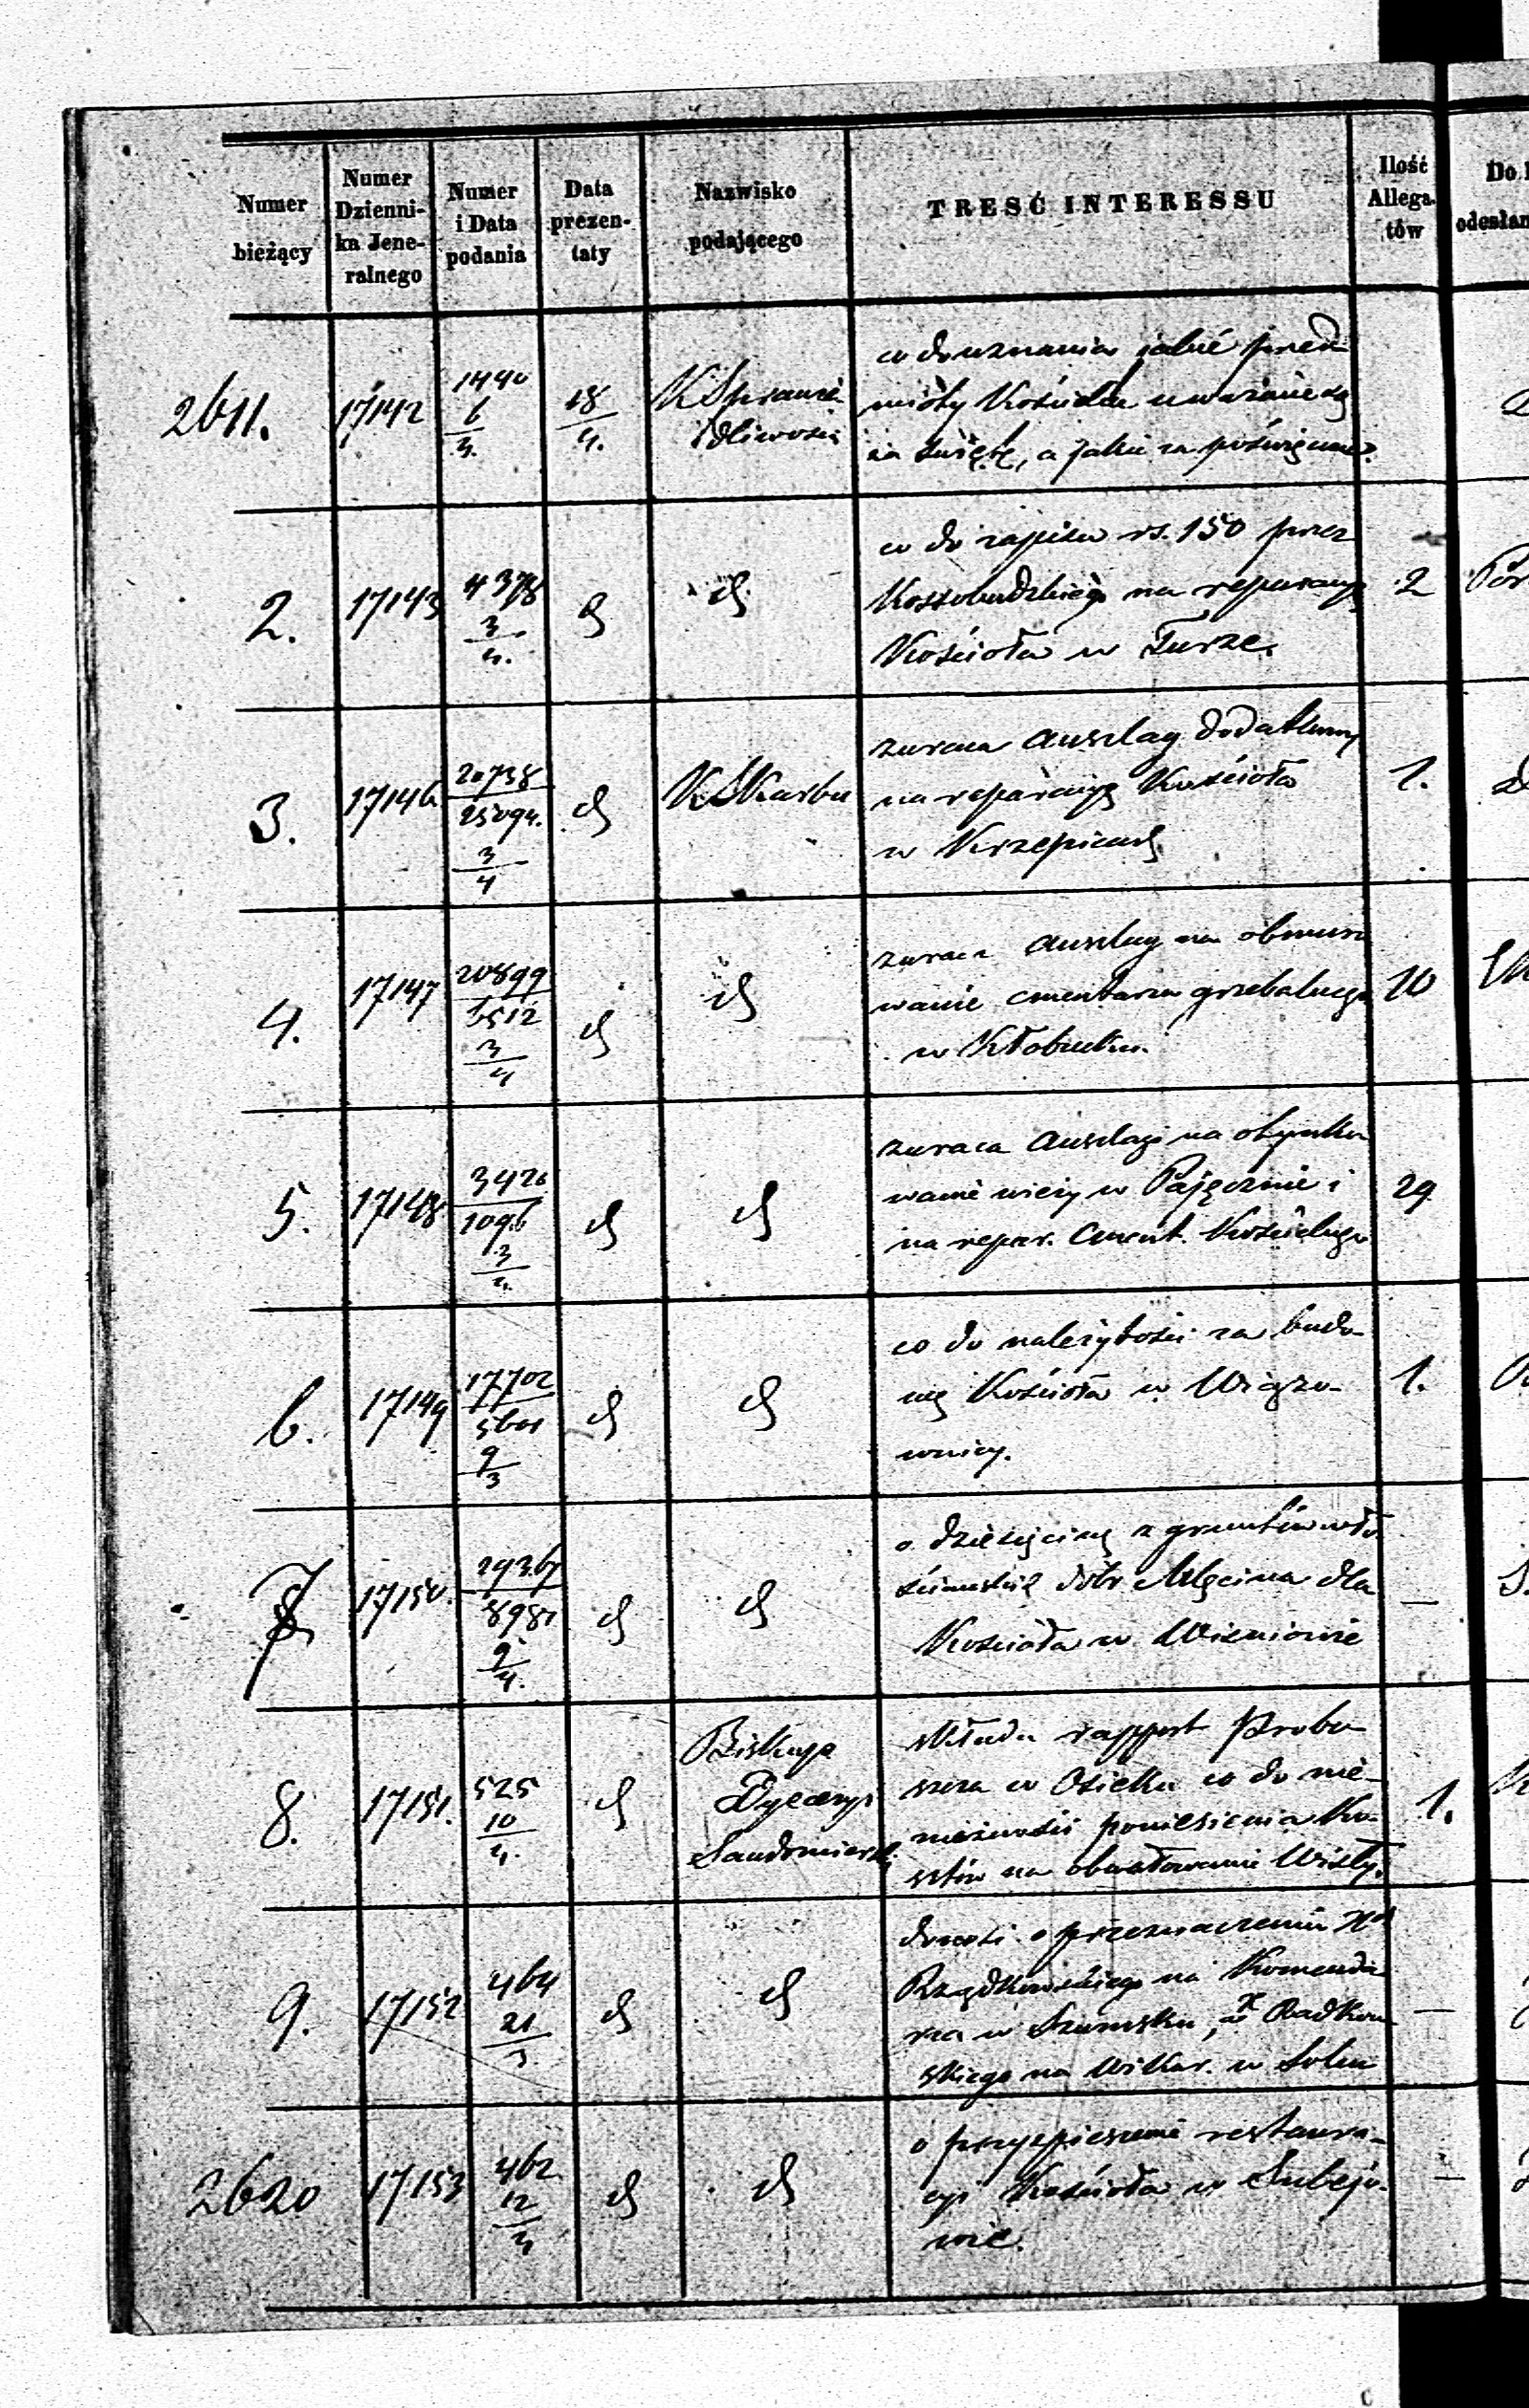 Numer bieżący
Numer Dzienni- ka Jene- ralnego
Numer i Data podania
Data prezen- taty
Nazwisko podającego
TREŚĆ INTERESSU
Ilość Allega- tów
2611.
17142
1440
6
3.
18
4.
K Sprawie
dliwości
co do uznania jakie przed
mioty Kościelne uważane są
za święte, a jakie za poświęcone.
2.
17143
4378
3
4.
d
d
co do zapisu rs. 150 przez
Kossobudzkiego na reparacyę
Kościoła w Turze.
2
3.
17146
20738
25094.
3
4
d
K Skarbu
zwraca anszlag dodatkowy
na reparacyę Kościoła
w Krzepicach
1.
4.
17147
20899
6512
3
4
d
d
zwraca anszlag na obmuro
wanie cmentarza grzebalnego
w Kłobucku.
10
5.
17148
3420
1096
3
4.
d
d
zwraca anszlagi na otynko
wanie wieży w Pajęcznie i
na repar. cment. Kościelnego
29
6.
17149
17702
5601
9
3
d
d
co do należytości za budo-
wę Kościoła w Wiązo-
wnicy.
1.
7
17150.
29367
8981
9
4.
d
d
o dziesięcinę z gruntów wło
ściańskich dóbr Mlęcina dla
Kościoła w Wiśniowie
—
8.
17151.
525
10
4.
d
Biskup
Dyecezyi
Sandomiersk.
składa rapport Probo
szcza w Osieku co do nie-
możności poniesienia ko-
sztów na obwałowanie Wisły.
1.
9.
17152
464
21
3
d
d
donosi o przeznaczeniu Xa
Rządkowskiego na Komenda
rza w Szumsku, a X Radkow
skiego na Wikar. w Solcu
—
2620
17153
462
12
4
d
d
o przyspieszenie restaura-
cyi Kościoła w
wie.
—